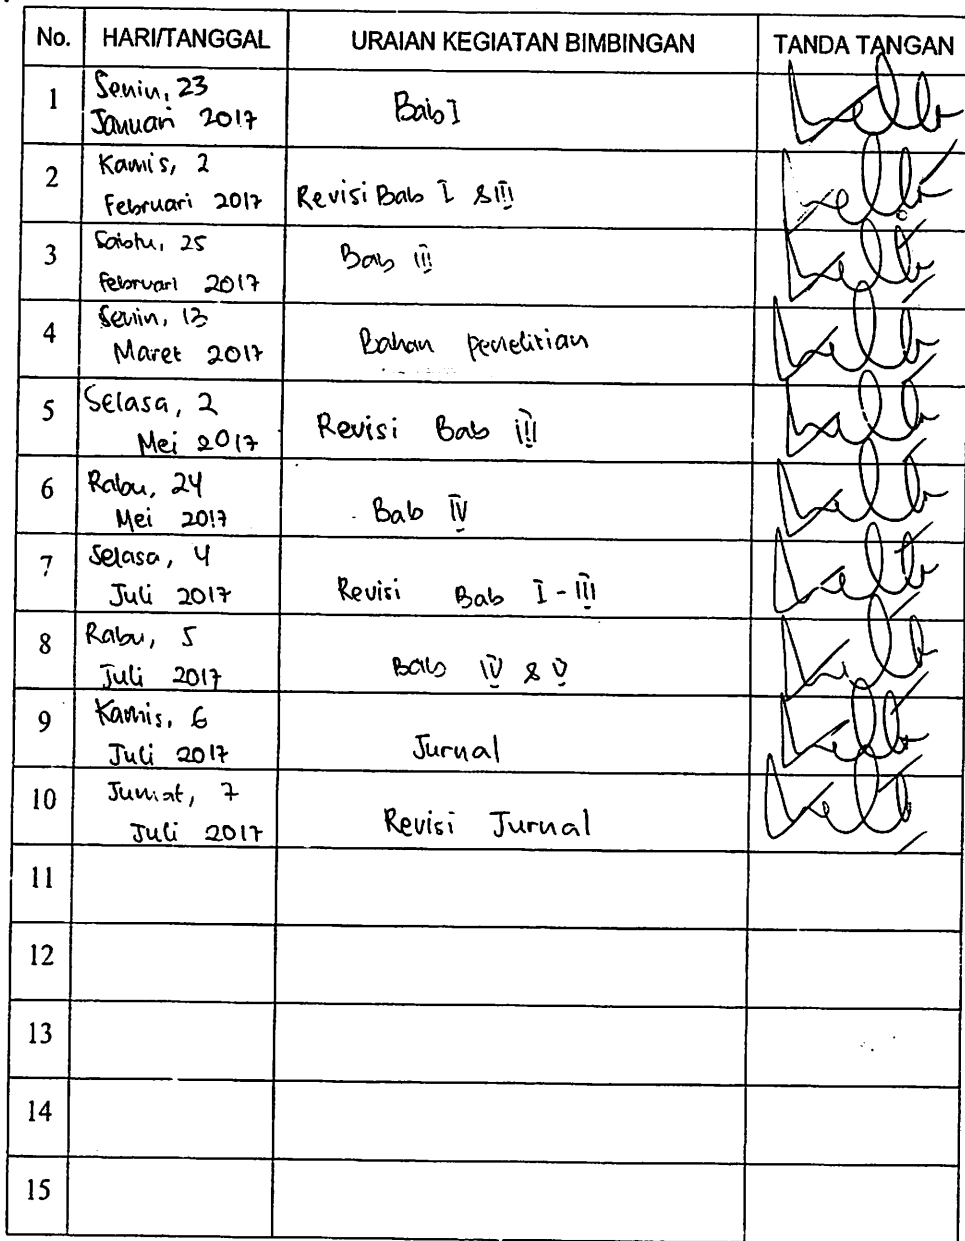 No. HARI/TANGGAL URAIAN KEGIATAN BIMBINGAN TANDA TANGAN
1 Senin, 23
Januari 2017 Bab I
2 Kamis, 2
Februari 2017 Revisi Bab I & III
3 Sabtu, 25
Februari 2017 Bab III
4 Senin, 13
Maret 2017 Bahan penelitian
5 Selasa, 2
Mei 2017 Revisi Bab III
6 Rabu, 24
Mei 2017 Bab IV
7 Selasa, 4
Juli 2017 Revisi Bab I - III
8 Rabu, 5
Juli 2017 Bab IV & V
9 Kamis, 6
Juli 2017 Jurnal
10 Jumat, 7
Juli 2017 Revisi Jurnal
11
12
13
14
15